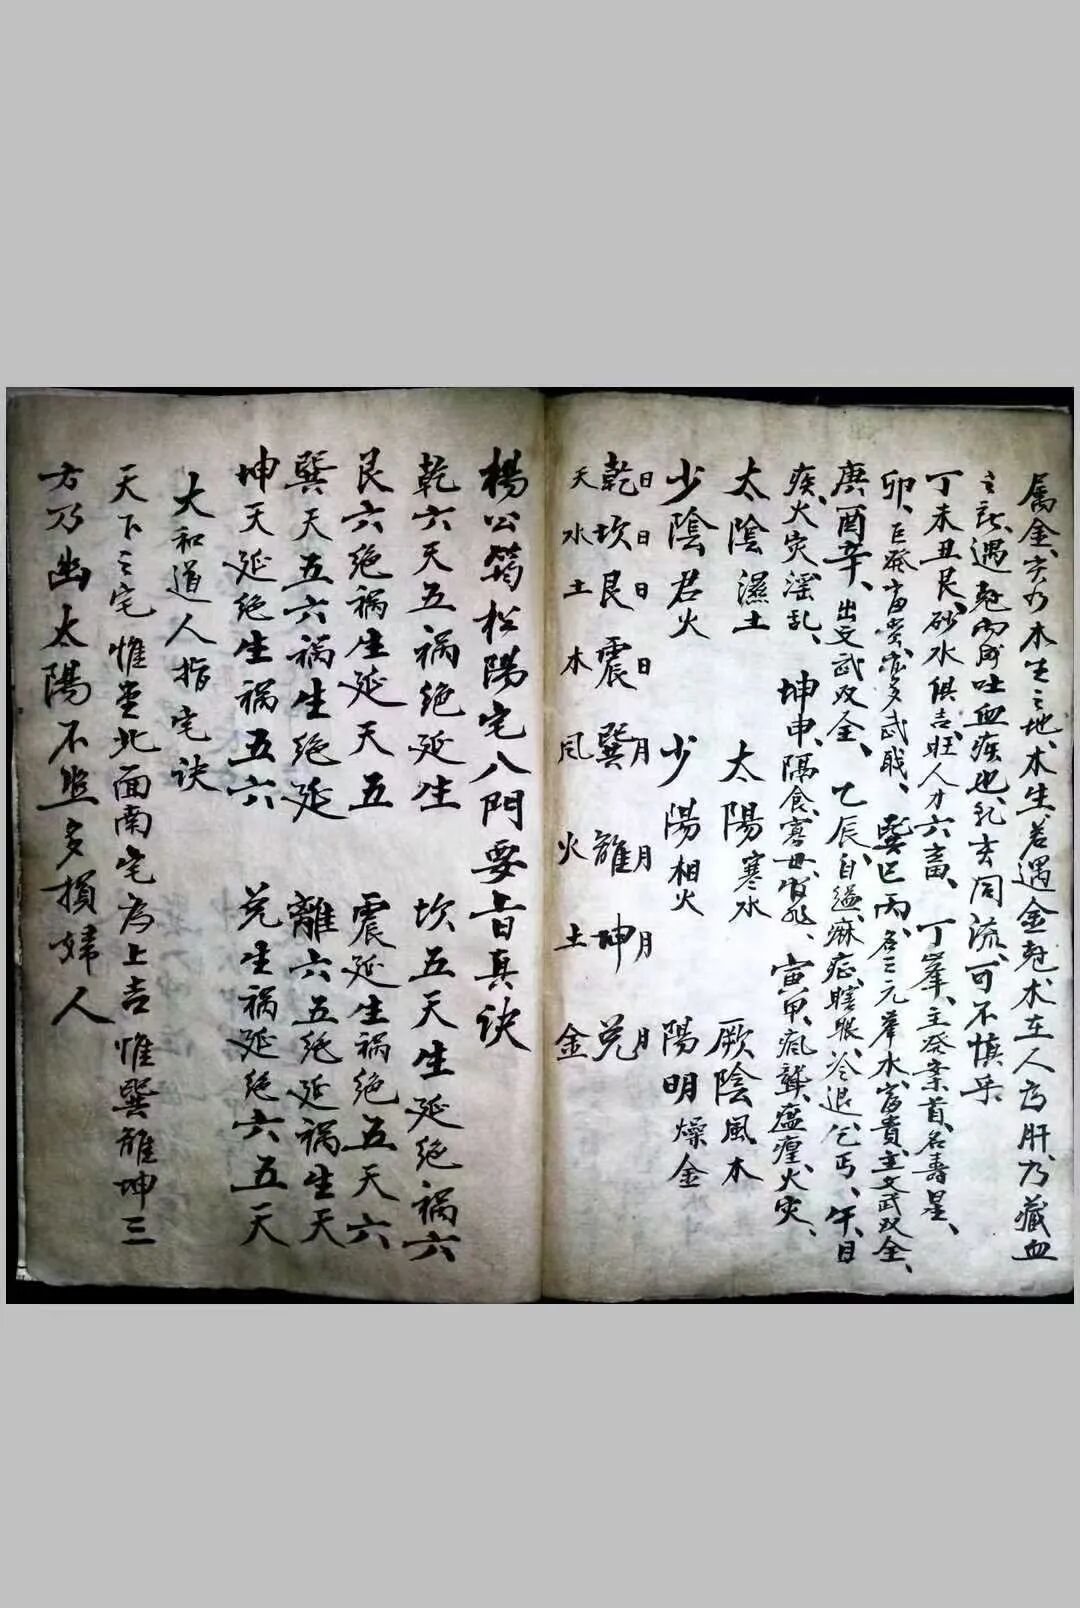 属金、亥乃木生之地、木生、若遇金尅木、在人为肝、乃藏血
之, 遇尅 吐血疾也, 玄同流, 可不慎乎
丁未丑艮、砂水俱吉、旺人才六畜、丁峯、主发案首、名壽星、
卯、巨 發富 多武职、巽巳丙、名三元峯水、富貴、主文武双全、
庚酉辛、出文武双全、乙辰、自缢、麻症、瞎眼、冷退、乞丐、午、目
疾、火灾淫乱、坤申、隔食、寡母 、寅甲、疯聾、瘟瘽、火灾、
太陰濕土 太陽寒水 厥陰風木
少陰君火 少陽相火 陽明燥金
日日日日月月月月
乾坎艮震巽離坤兑
天水土木风火土金
楊公筠松陽宅八門要旨真诀
乾六天五祸绝延生 坎五天生延绝祸六
艮六绝祸生延天五 震延生祸绝五天六
巽天五六祸生绝延 離六五绝延祸生天
坤天延绝生祸五六 兑生祸延绝六五天
大和道人指宅诀
天下之宅惟坐北面南宅为上吉惟巽離坤三
方乃幽太陽不 多損婦人